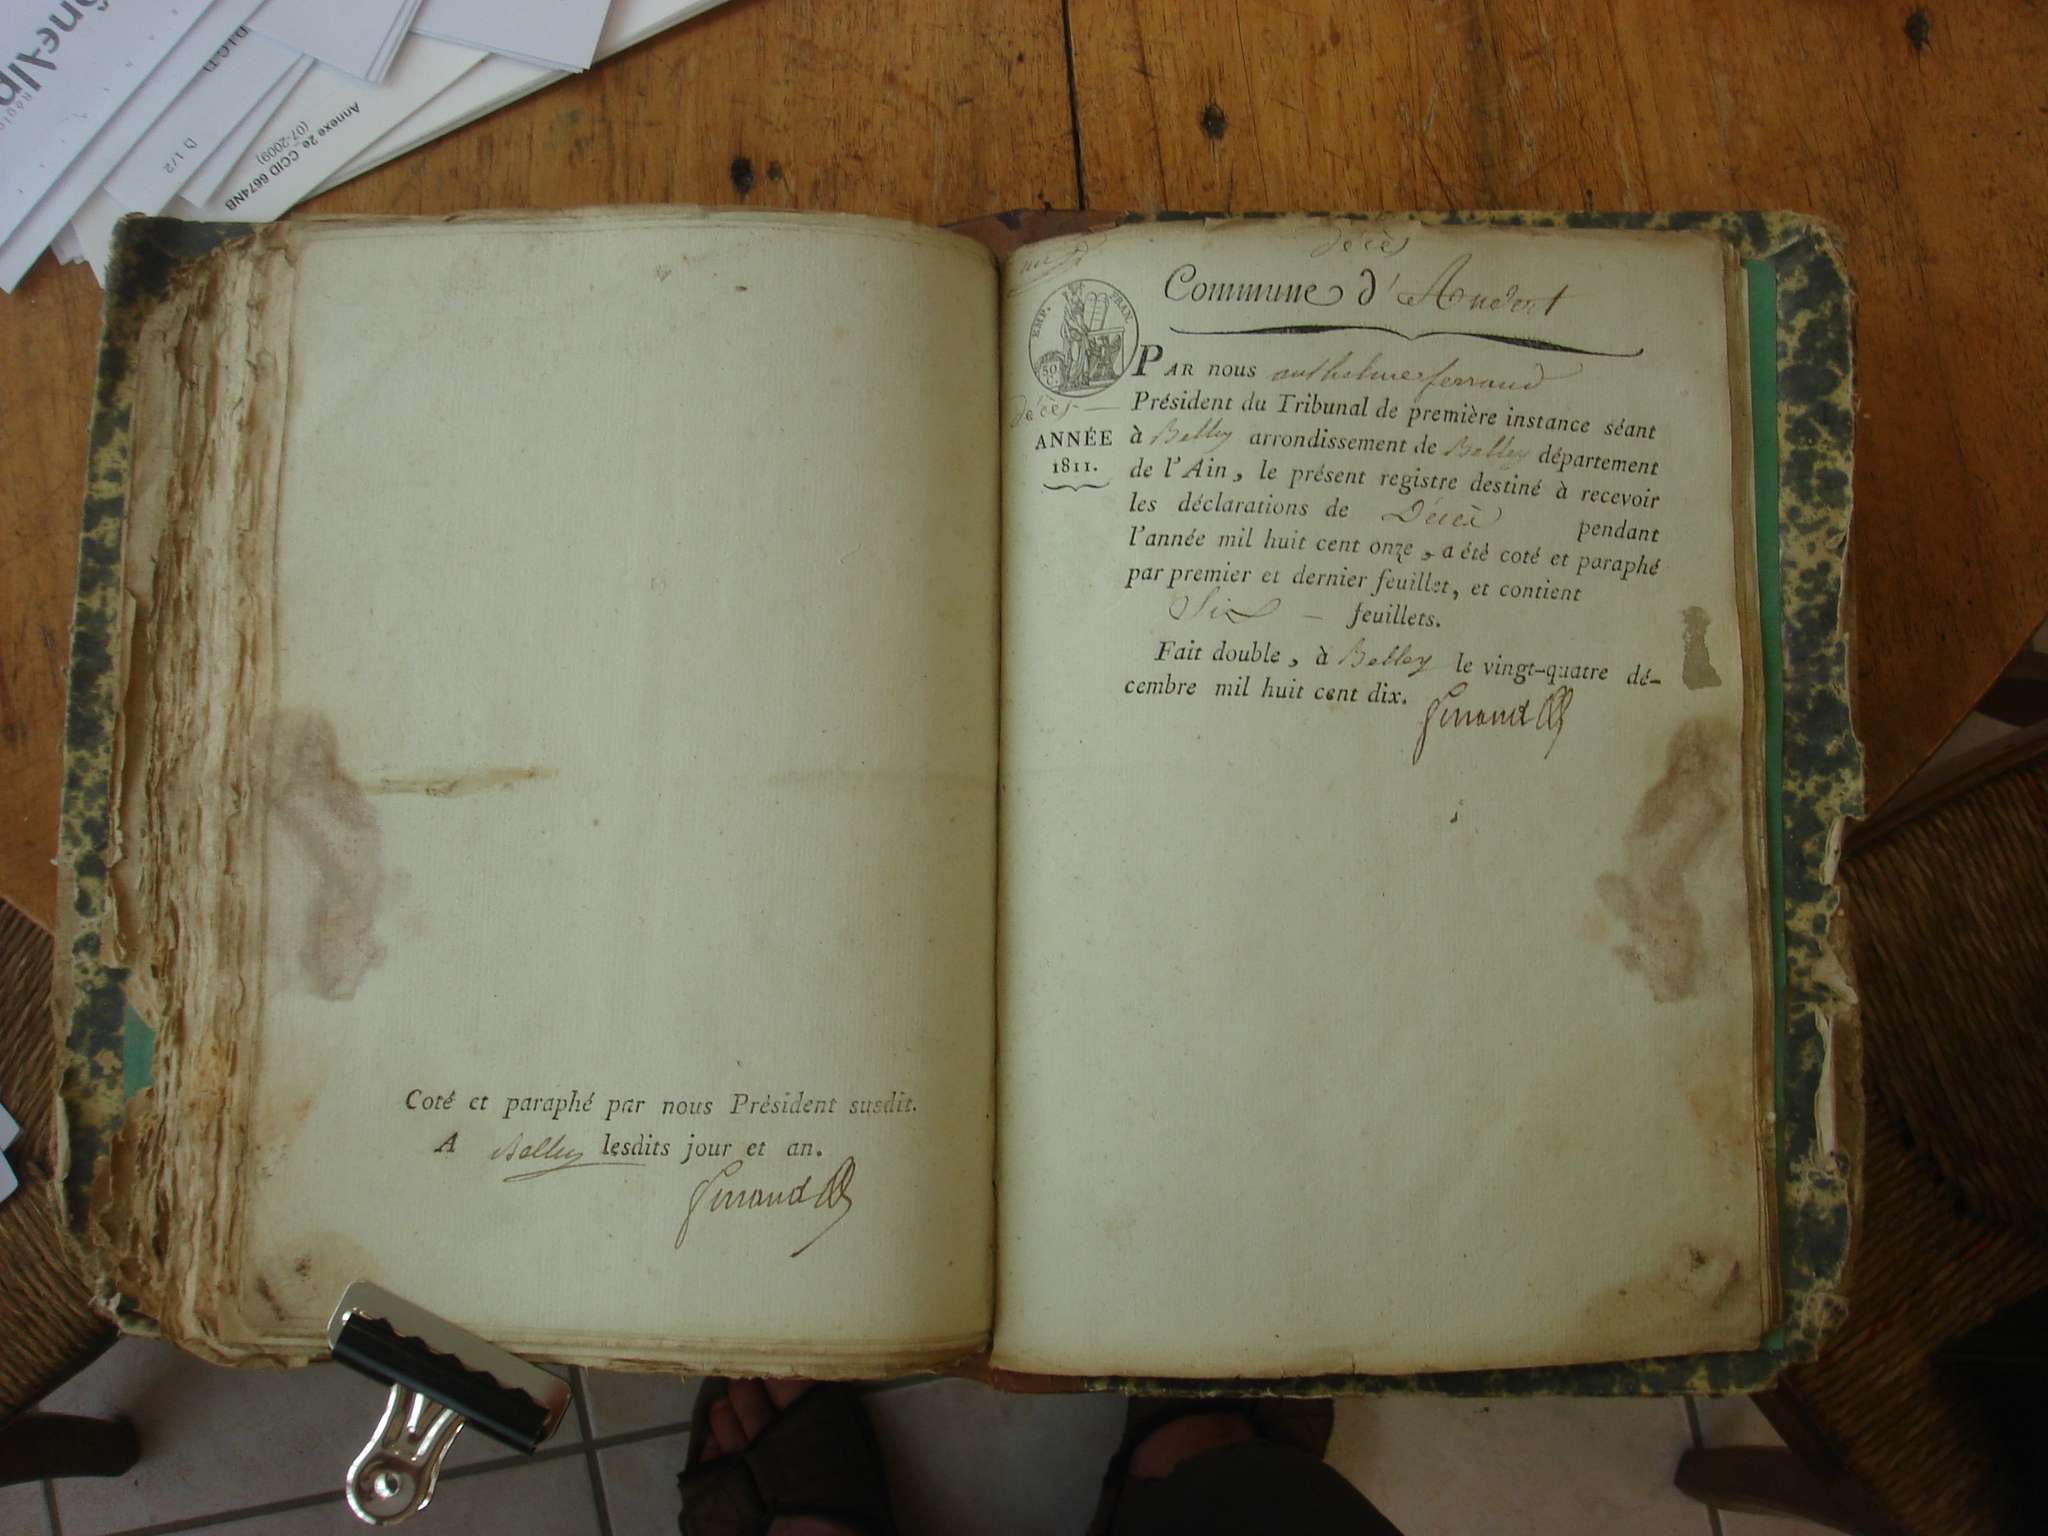 D I C D
D 1 / 2
Annexe 2e CCID 6674NB
(07-2009)
Coté et paraphé par nous Président susdit.
A Belley lesdits jour et an.
Ferrand
décès
Commune d'Andert
EMP. FRAN.
50 C.
décès
ANNÉE
1811.
PAR nous anthelme ferrand
Président du Tribunal de première instance séant
à Belley arrondissement de Belley département
de l'Ain, le présent registre destiné à recevoir
les déclarations de Décès pendant
l'année mil huit cent onze, a été coté et paraphé
par premier et dernier feuillet, et contient
Six feuillets.
Fait double, à Belley le vingt-quatre dé-
cembre mil huit cent dix.
Ferrand